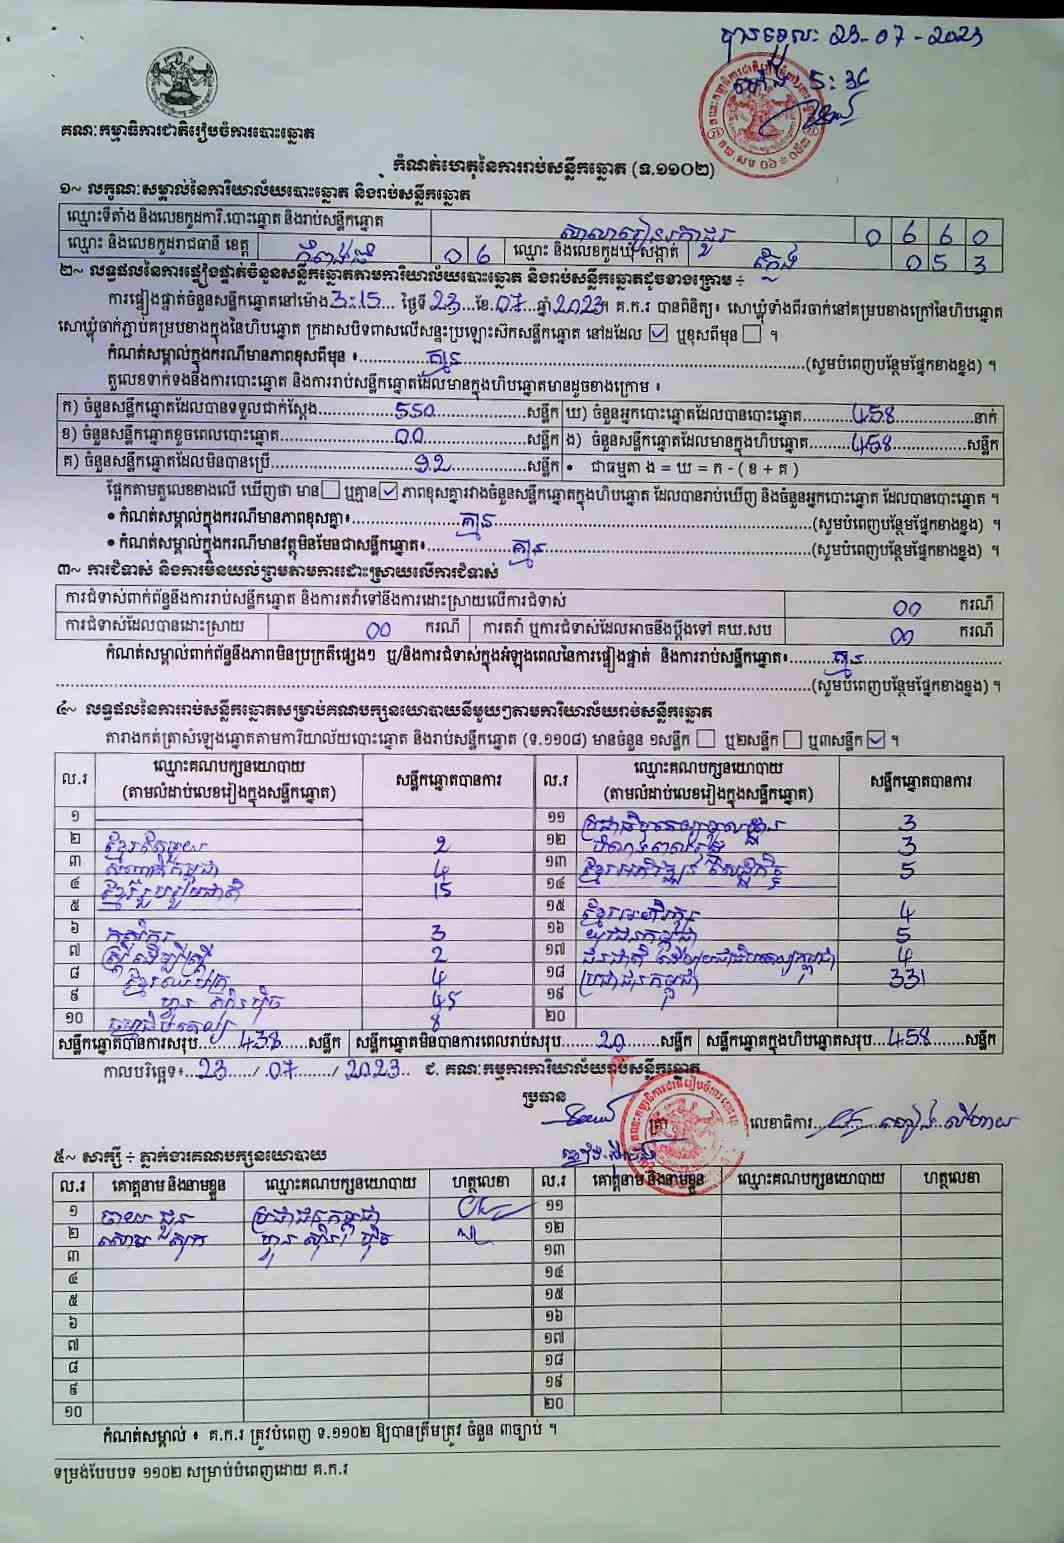 បានទទួល: 23-07-2023
ម៉ោង 5:30
គណៈកម្មាធិការជាតិរៀបចំការបោះឆ្នោត
កំណត់ហេតុនៃការរាប់សន្លឹកឆ្នោត (ទ.១១០២)
១~ លក្ខណៈសម្គាល់នៃការិយាល័យបោះឆ្នោត និងរាប់សន្លឹកឆ្នោត
ឈ្មោះទីតាំង និងលេខកូដការិ.បោះឆ្នោត និងរាប់សន្លឹកឆ្នោត សាលារៀន 0 6 6 0
ឈ្មោះ និងលេខកូដរាជធានី ខេត្ត កំពង់ធំ 0 6 ឈ្មោះ និងលេខកូដឃុំ-សង្កាត់ ក្លែង 0 5 3
២~ លទ្ធផលនៃការផ្ទៀងផ្ទាត់ចំនួនសន្លឹកឆ្នោតតាមការិយាល័យបោះឆ្នោត និងរាប់សន្លឹកឆ្នោតដូចខាងក្រោម ÷
ការផ្ទៀងផ្ទាត់ចំនួនសន្លឹកឆ្នោតនៅម៉ោង 3:15 ថ្ងៃទី 23 ខែ 07 ឆ្នាំ 2023។ គ.ក.រ បានពិនិត្យ៖ សោឃ្លុំទាំងពីរចាក់នៅគម្របខាងក្រៅនៃហិបឆ្នោត
សោឃ្លុំចាក់ភ្ជាប់គម្របខាងក្នុងនៃហិបឆ្នោត ក្រដាសបិទពាសលើសន្ទះប្រឡោះស៊កសន្លឹកឆ្នោត នៅដដែល ☑ ឬខុសពីមុន ☐ ។
កំណត់សម្គាល់ក្នុងករណីមានភាពខុសពីមុន ៖ គ្មាន (សូមបំពេញបន្ថែមផ្នែកខាងខ្នង) ។
តួលេខទាក់ទងនឹងការបោះឆ្នោត និងការរាប់សន្លឹកឆ្នោតដែលមានក្នុងហិបឆ្នោតមានដូចខាងក្រោម ៖
ក) ចំនួនសន្លឹកឆ្នោតដែលបានទទួលជាក់ស្តែង 550 សន្លឹក ឃ) ចំនួនអ្នកបោះឆ្នោតដែលបានបោះឆ្នោត 458 នាក់
ខ) ចំនួនសន្លឹកឆ្នោតខូចពេលបោះឆ្នោត 00 សន្លឹក ង) ចំនួនសន្លឹកឆ្នោតដែលមានក្នុងហិបឆ្នោត 458 សន្លឹក
គ) ចំនួនសន្លឹកឆ្នោតដែលមិនបានប្រើ 92 សន្លឹក • ជាធម្មតា ង = ឃ = ក - ( ខ + គ )
ផ្អែកតាមតួលេខខាងលើ ឃើញថា មាន ☐ ឬគ្មាន ☑ ភាពខុសគ្នារវាងចំនួនសន្លឹកឆ្នោតក្នុងហិបឆ្នោត ដែលបានរាប់ឃើញ និងចំនួនអ្នកបោះឆ្នោត ដែលបានបោះឆ្នោត ។
• កំណត់សម្គាល់ក្នុងករណីមានភាពខុសគ្នា៖ គ្មាន (សូមបំពេញបន្ថែមផ្នែកខាងខ្នង) ។
• កំណត់សម្គាល់ក្នុងករណីមានវត្ថុមិនមែនជាសន្លឹកឆ្នោត៖ គ្មាន (សូមបំពេញបន្ថែមផ្នែកខាងខ្នង) ។
៣~ ការជំទាស់ និងការមិនយល់ព្រមតាមការដោះស្រាយលើការជំទាស់
ការជំទាស់ពាក់ព័ន្ធនឹងការរាប់សន្លឹកឆ្នោត និងការតវ៉ាទៅនឹងការដោះស្រាយលើការជំទាស់ 00 ករណី
ការជំទាស់ដែលបានដោះស្រាយ 00 ករណី ការតវ៉ា ឬការជំទាស់ដែលអាចនឹងប្តឹងទៅ គឃ.សប 00 ករណី
កំណត់សម្គាល់ពាក់ព័ន្ធនឹងភាពមិនប្រក្រតីផ្សេងៗ ឬ/និងការជំទាស់ក្នុងអំឡុងពេលនៃការផ្ទៀងផ្ទាត់ និងការរាប់សន្លឹកឆ្នោត៖ គ្មាន
(សូមបំពេញបន្ថែមផ្នែកខាងខ្នង) ។
៤~ លទ្ធផលនៃការរាប់សន្លឹកឆ្នោតសម្រាប់គណបក្សនយោបាយនីមួយៗតាមការិយាល័យរាប់សន្លឹកឆ្នោត
តារាងកត់ត្រាសំឡេងឆ្នោតតាមការិយាល័យបោះឆ្នោត និងរាប់សន្លឹកឆ្នោត (ទ.១១០៨) មានចំនួន ១សន្លឹក ☐ ឬ២សន្លឹក ☐ ឬ៣សន្លឹក ☑ ។
ល.រ ឈ្មោះគណបក្សនយោបាយ (តាមលំដាប់លេខរៀងក្នុងសន្លឹកឆ្នោត) សន្លឹកឆ្នោតបានការ ល.រ ឈ្មោះគណបក្សនយោបាយ (តាមលំដាប់លេខរៀងក្នុងសន្លឹកឆ្នោត) សន្លឹកឆ្នោតបានការ
១ ១១ ប្រជាធិបតេយ្យមូលដ្ឋាន 3
២ ខ្មែរតែមួយ 2 ១២ 3
៣ សញ្ជាតិកម្ពុជា 4 ១៣ ខ្មែរអភិវឌ្ឍន៍សេដ្ឋកិច្ច 5
៤ ខ្មែររួបរួមជាតិ 15 ១៤
៥ ១៥ ខ្មែរអភិរក្ស 4
៦ កសិករ 3 ១៦ យុវជនកម្ពុជា 5
៧ ស្ត្រីដើម្បីស្ត្រី 2 ១៧ ជនជាតិដើមប្រជាធិបតេយ្យកម្ពុជា 4
៨ ខ្មែរឈប់ក្រ 4 ១៨ ប្រជាជនកម្ពុជា 331
៩ ហ្វ៊ុនស៊ិនប៉ិច 45 ១៩
១០ ធម្មាធិបតេយ្យ 8 ២០
សន្លឹកឆ្នោតបានការសរុប 438 សន្លឹក សន្លឹកឆ្នោតមិនបានការពេលរាប់សរុប 20 សន្លឹក សន្លឹកឆ្នោតក្នុងហិបឆ្នោតសរុប 458 សន្លឹក
កាលបរិច្ឆេទ៖ 23 / 07 / 2023 ជ. គណៈកម្មការការិយាល័យរាប់សន្លឹកឆ្នោត
ប្រធាន
ត្រា លេខាធិការ
៥~ សាក្សី ÷ ភ្នាក់ងារគណបក្សនយោបាយ
ល.រ គោត្តនាម និងនាមខ្លួន ឈ្មោះគណបក្សនយោបាយ ហត្ថលេខា ល.រ គោត្តនាម និងនាមខ្លួន ឈ្មោះគណបក្សនយោបាយ ហត្ថលេខា
១ ប្រជាជនកម្ពុជា ១១
២ ហ្វ៊ុនស៊ិនប៉ិច ១២
៣ ១៣
៤ ១៤
៥ ១៥
៦ ១៦
៧ ១៧
៨ ១៨
៩ ១៩
១០ ២០
កំណត់សម្គាល់ ៖ គ.ក.រ ត្រូវបំពេញ ទ.១១០២ ឱ្យបានត្រឹមត្រូវ ចំនួន ៣ច្បាប់ ។
ទម្រង់បែបបទ ១១០២ សម្រាប់បំពេញដោយ គ.ក.រ